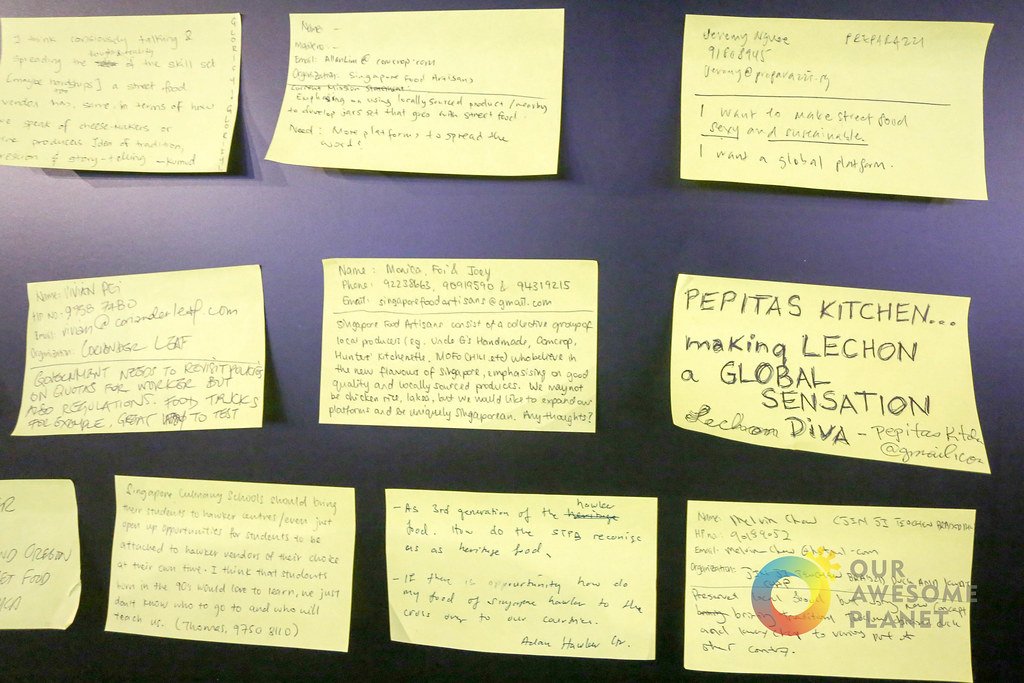 I think consciously talking &
spreading the of the skill set
a street food
vendor has, same in terms of how
we speak of cheese-makers or
wine producers. Idea of tradition,
& story-telling
Name: -
Mobile: -
Email: Allenlim@comcrop.com
Organization: Singapore Food Artisans
Current Mission Statement:
Emphasis on using locally sourced produce / nearby
to develop that goes with street food.
Need: More platforms to spread the
word!
Jeremy Nguee PREPARAZZI
91868945
jeremy@preparazzi.sg
I want to make street food
sexy and sustainable.
I want a global platform.
Name: VIVIAN PEI
HP No: 9758 7480
Email: vivian@corianderleaf.com
Organization: CORIANDER LEAF
GOVERNMENT NEEDS TO REVISIT POLICIES
ON QUOTAS FOR WORKER BUT
ALSO REGULATIONS. FOOD TRUCKS
FOR EXAMPLE. GREAT TO TEST
Name: Monica, Foi & Joey
Phone: 92238663, 90919590 & 94319215
Email: singaporefoodartisans@gmail.com
Singapore Food Artisans consist of a collective group of
local producers (eg. Uncle G's Handmade, Comcrop,
Hunters' Kitchenette, MOFO CHILI etc) who believe in
the new flavours of Singapore, emphasising on good
quality and locally sourced produces. We may not
be chicken rice, laksa, but we would like to expand our
platforms and be uniquely Singaporean. Any thoughts?
PEPITAS KITCHEN...
making LECHON
a GLOBAL
SENSATION
Lechon DIVA - pepitaskitchen
@gmail.com
OREGON
FOOD
Singapore Culinary Schools should bring
their students to hawker centres/even just
open up opportunities for students to be
attached to hawker vendors of their choice
at their own time. I think that students
born in the 90's would love to learn, we just
don't know who to go to and who will
teach us. (Thomas, 9750 8110)
- As 3rd generation of the heritage hawker
food. How do the STPB recognise
us as heritage food.
- If there is opportunity how do
my food of Singapore hawker to the
cross over to our countries.
Adam Hawker
Name: Melvin Chew
HP No: 90189052
Email: Melvin Chew @
Organization:
Preserved local food
bring tradition
and to various part of
other country.
OUR
AWESOME
PLANET